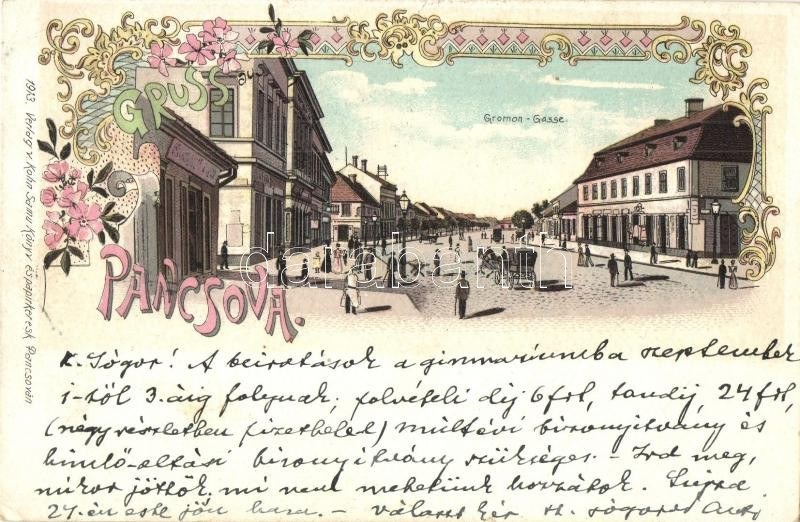 GRUSS
aus
PANCSOVA.
Gromon-Gasse.
1913. Verlag v. Kohn Samu Könyv és papirkeresk. Pancsován
darabanth
K. Sógor! A beiratások a gimnáziumba szeptember
1-től 3.áig folynak; felvételi díj 6 frt, tandíj 24 frt,
(négy részletben fizethető) múltévi bizonyítvány és
himlő-oltási bizonyítvány szükséges. - Ird meg,
mikor jöttök, mi nem mehetünk hozzátok.
27.én este jön haza. - választ kér sz. sógorod